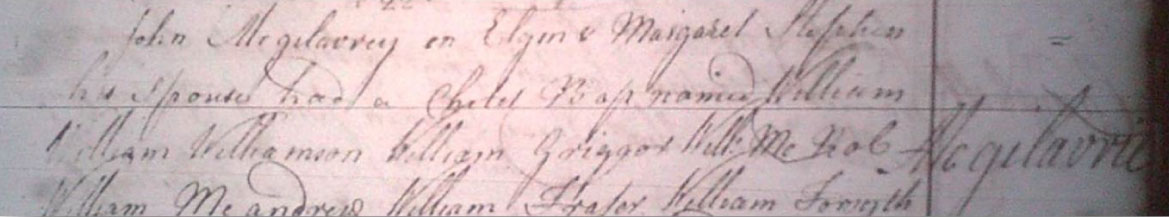 John Mcgilavrey in Elgin & Margaret Stephen
his spouse had a Child Bap. named William
William Williamson William Griggor Willm McRob
Mcgilavrie
William Mcandrew William Fraser William Forsyth